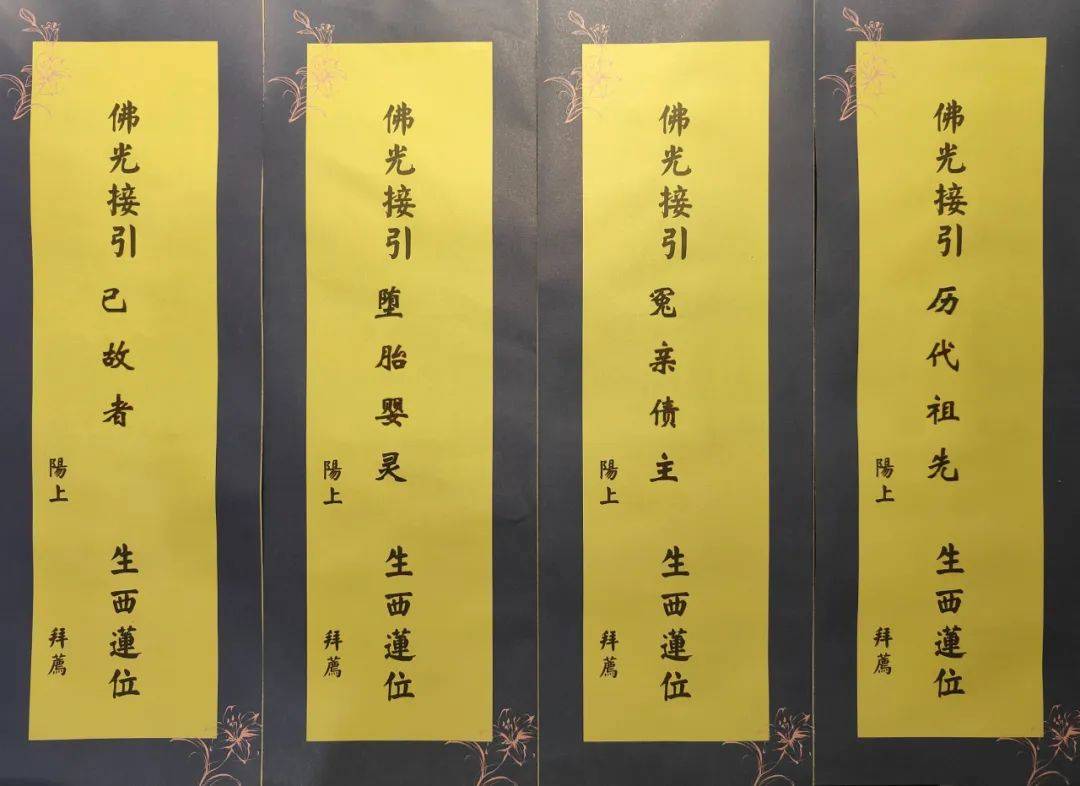 佛光接引 历代祖先 生西蓮位
陽上 拜薦
佛光接引 冤亲债主 生西蓮位
陽上 拜薦
佛光接引 堕胎婴灵 生西蓮位
陽上 拜薦
佛光接引 已故者 生西蓮位
陽上 拜薦